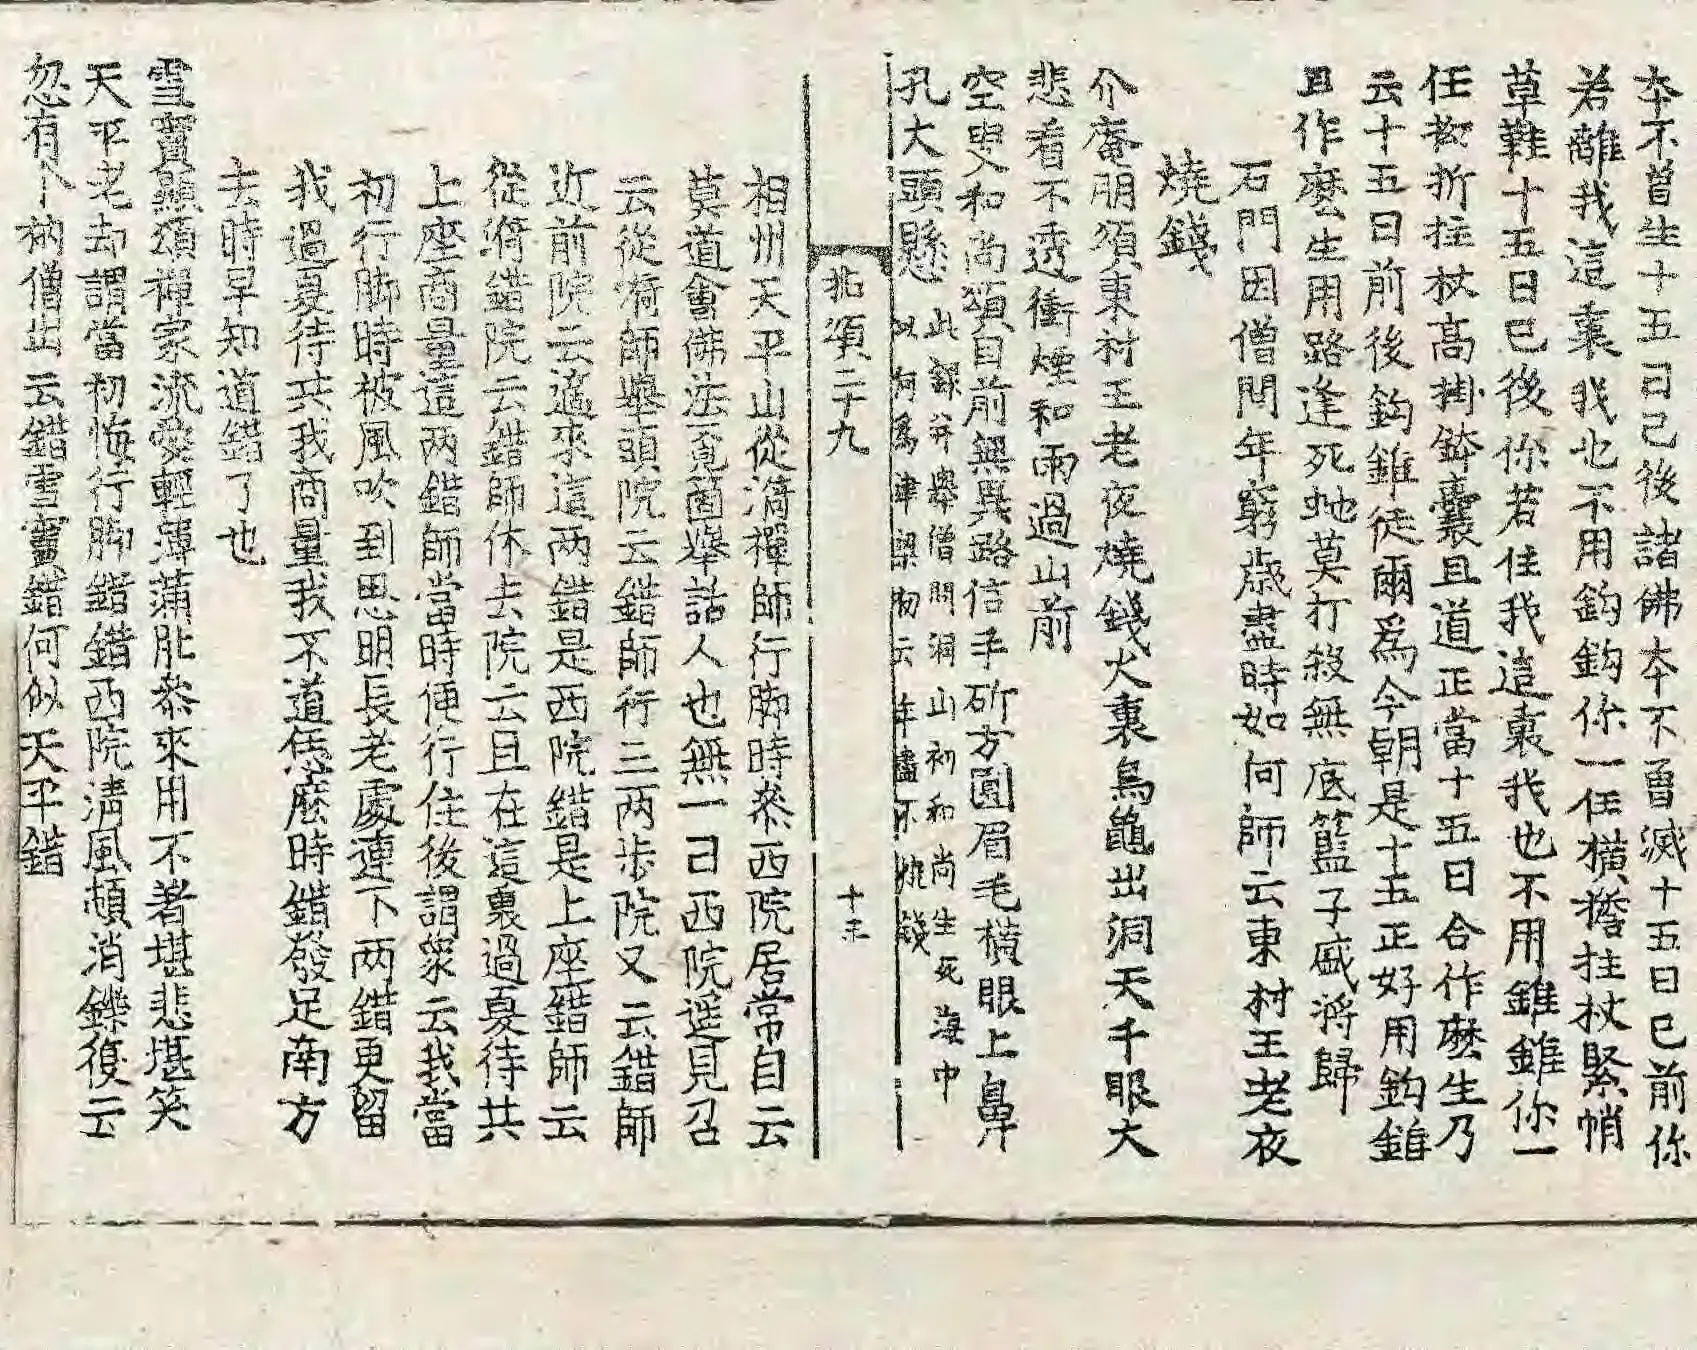 本不曾生十五日已後諸佛本不曾滅十五日已前你
若離我這裏我也不用鈎鈎你一任橫擔拄杖緊帩
草鞋十五日已後你若住我這裏我也不用錐錐你一
任拗折拄杖高掛鉢囊且道正當十五日合作麽生乃
云十五日前後鈎錐徒爾爲今朝是十五正好用鈎錐
且作麽生用路逢死虵莫打殺無底籃子盛將歸
石門因僧問年窮歲盡時如何師云東村王老夜
燒錢
介庵朋頌東村王老夜燒錢火裏烏龜出洞天千眼大
悲看不透衝煙和雨過山前
空叟和尚頌目前無異路信手斫方圓眉毛橫眼上鼻
孔大頭懸
此録并擧僧問洞山初和尚生死海中
以何爲津梁初云年盡不燒錢
拈頌二十九
相州天平山從漪禪師行脚時叅西院居常自云
莫道會佛法覔箇擧話人也無一日西院遥見召
云從漪師擧頭院云錯師行三两步院又云錯師
近前院云適來這两錯是西院錯是上座錯師云
從漪錯院云錯師休去院云且在這裏過夏待共
上座商量這两錯師當時便行住後謂衆云我當
初行脚時被風吹到思明長老處連下两錯更留
我過夏待共我商量我不道恁麽時錯發足南方
去時早知道錯了也
雪竇顯頌禪家流愛輕薄滿肚叅來用不著堪悲堪笑
天平老却謂當初悔行脚錯錯西院淸風頓消鑠復云
忽有个衲僧出云錯雪竇錯何似天平錯